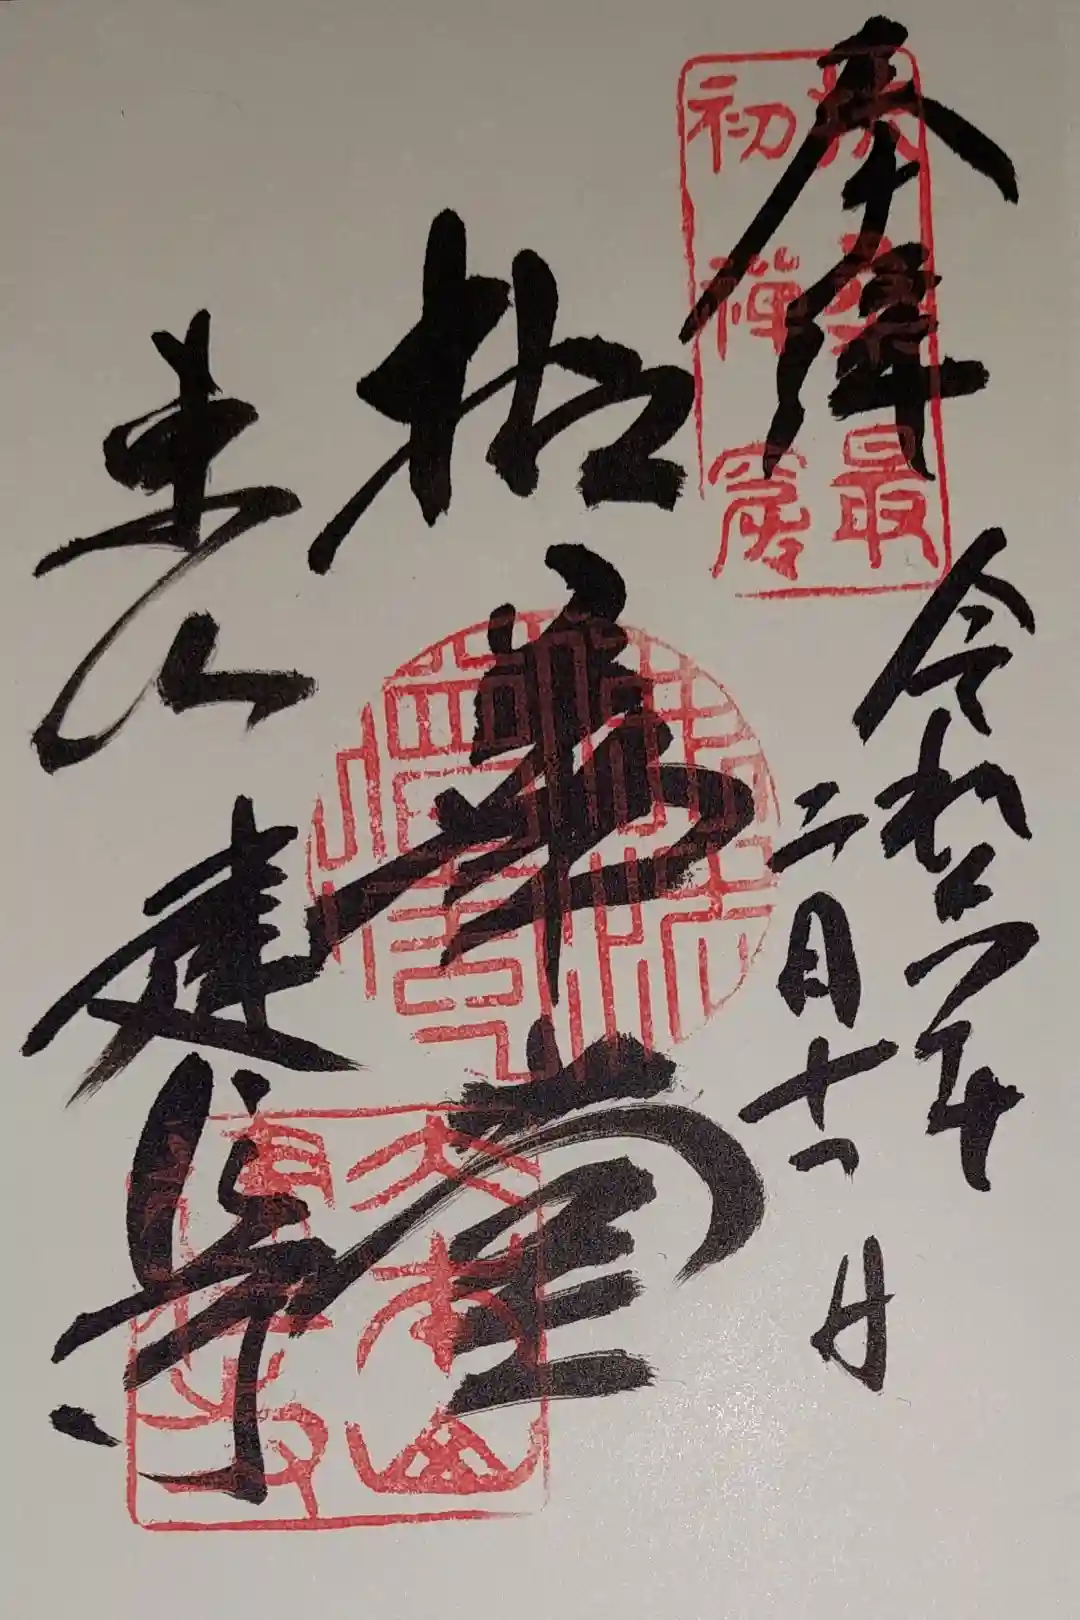 奉拝
扶桑最
初禅窟
令和 年
二月十一日
拈華堂
東山
建仁寺
大本山
建仁寺